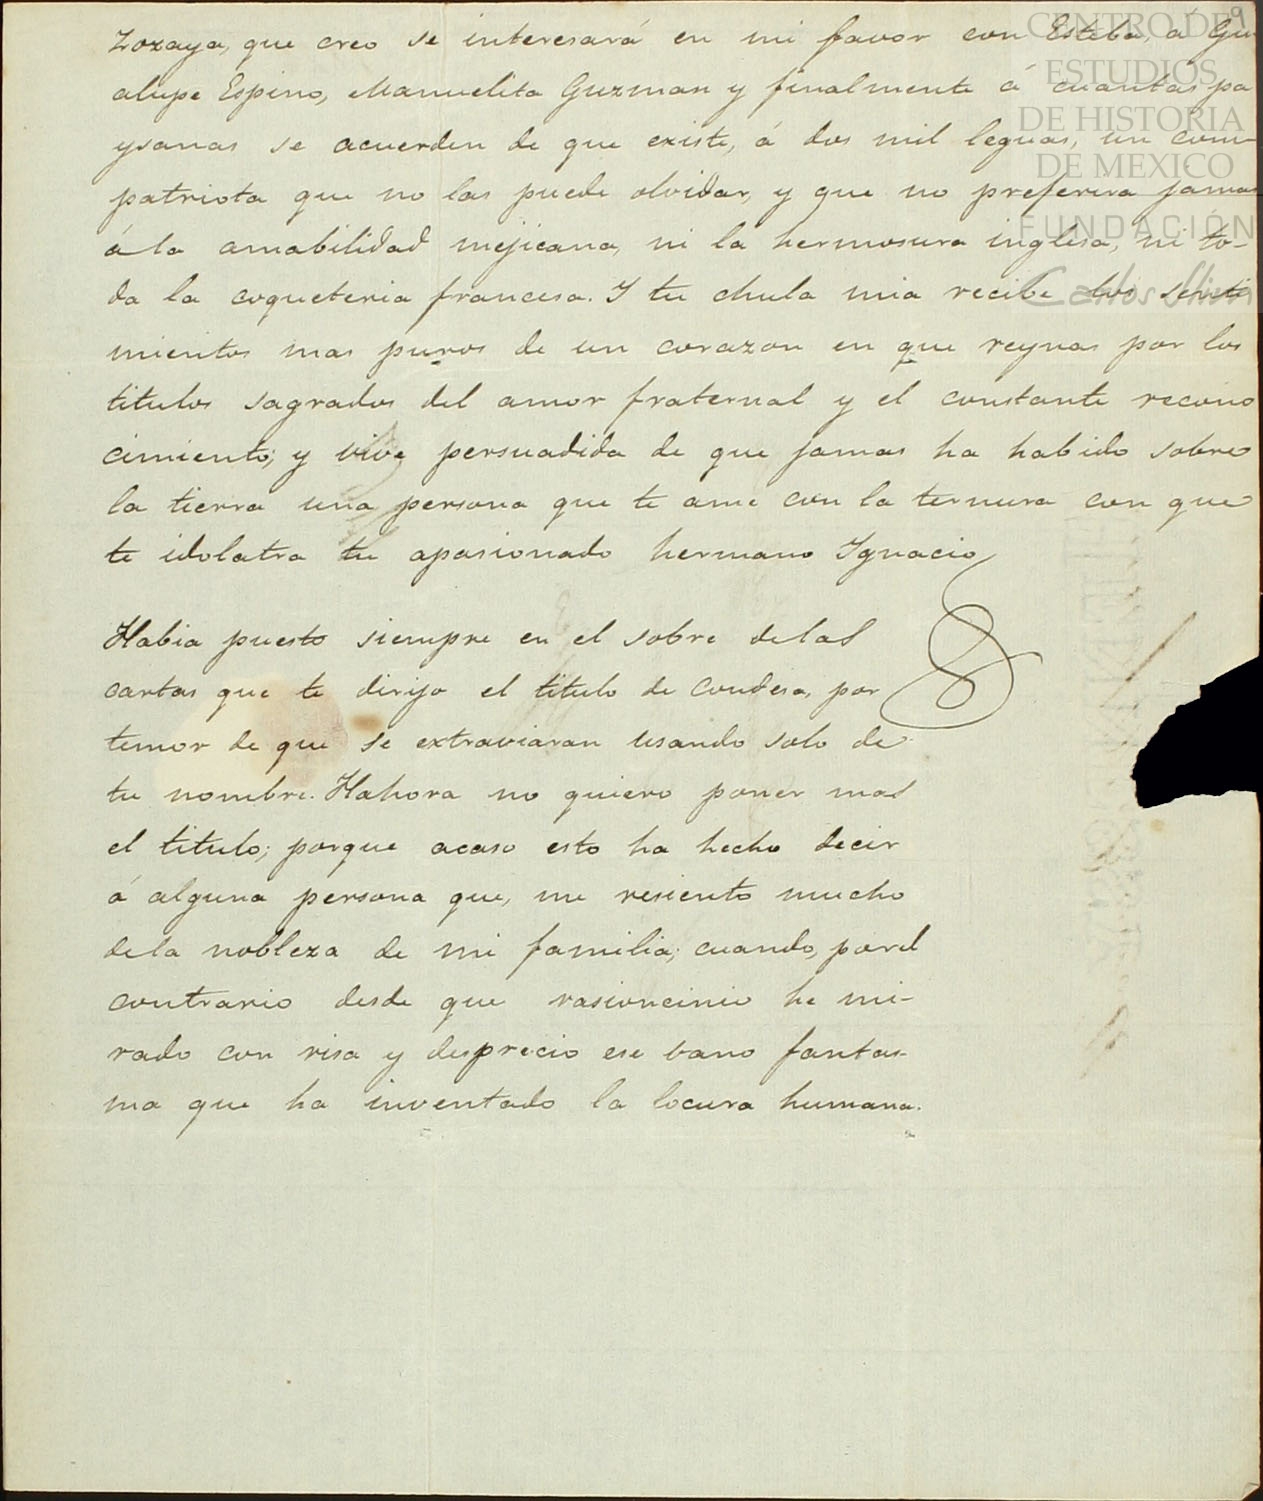 9
CENTRO DE
ESTUDIOS
DE HISTORIA
DE MEXICO
FUNDACIÓN
Carlos Slim
Zozaya, que creo se interesará en mi favor con Esteba, á Gu
alupe Espino, Manuelita Guzman y finalmente á cuantas pa
ysanas se acuerden de que existe, á dos mil leguas, un com-
patriota que no las puede olvidar, y que no preferira jamas
á la amabilidad mejicana, ni la hermosura inglesa, ni to-
da la coqueteria francesa. Y tu chula mia recibe los senti
mientos mas puros de un corazon en que reynas por los
titulos sagrados del amor fraternal y el constante recono
cimiento; y vive persuadida de que jamas ha habido sobre
la tierra una persona que te ame con la ternura con que
te idolatra tu apasionado hermano Ygnacio
Habia puesto siempre en el sobre delas
cartas que te dirijo el titulo de Condesa, por
temor de que se extraviaran usando solo de
tu nombre. Hahora no quiero poner mas
el titulo; porque acaso esto ha hecho decir
á alguna persona que, me resiento mucho
dela nobleza de mi familia; cuando, porel
contrario desde que rasioncinio he mi-
rado con risa y desprecio ese bano fantas-
ma que ha inventado la locura humana.